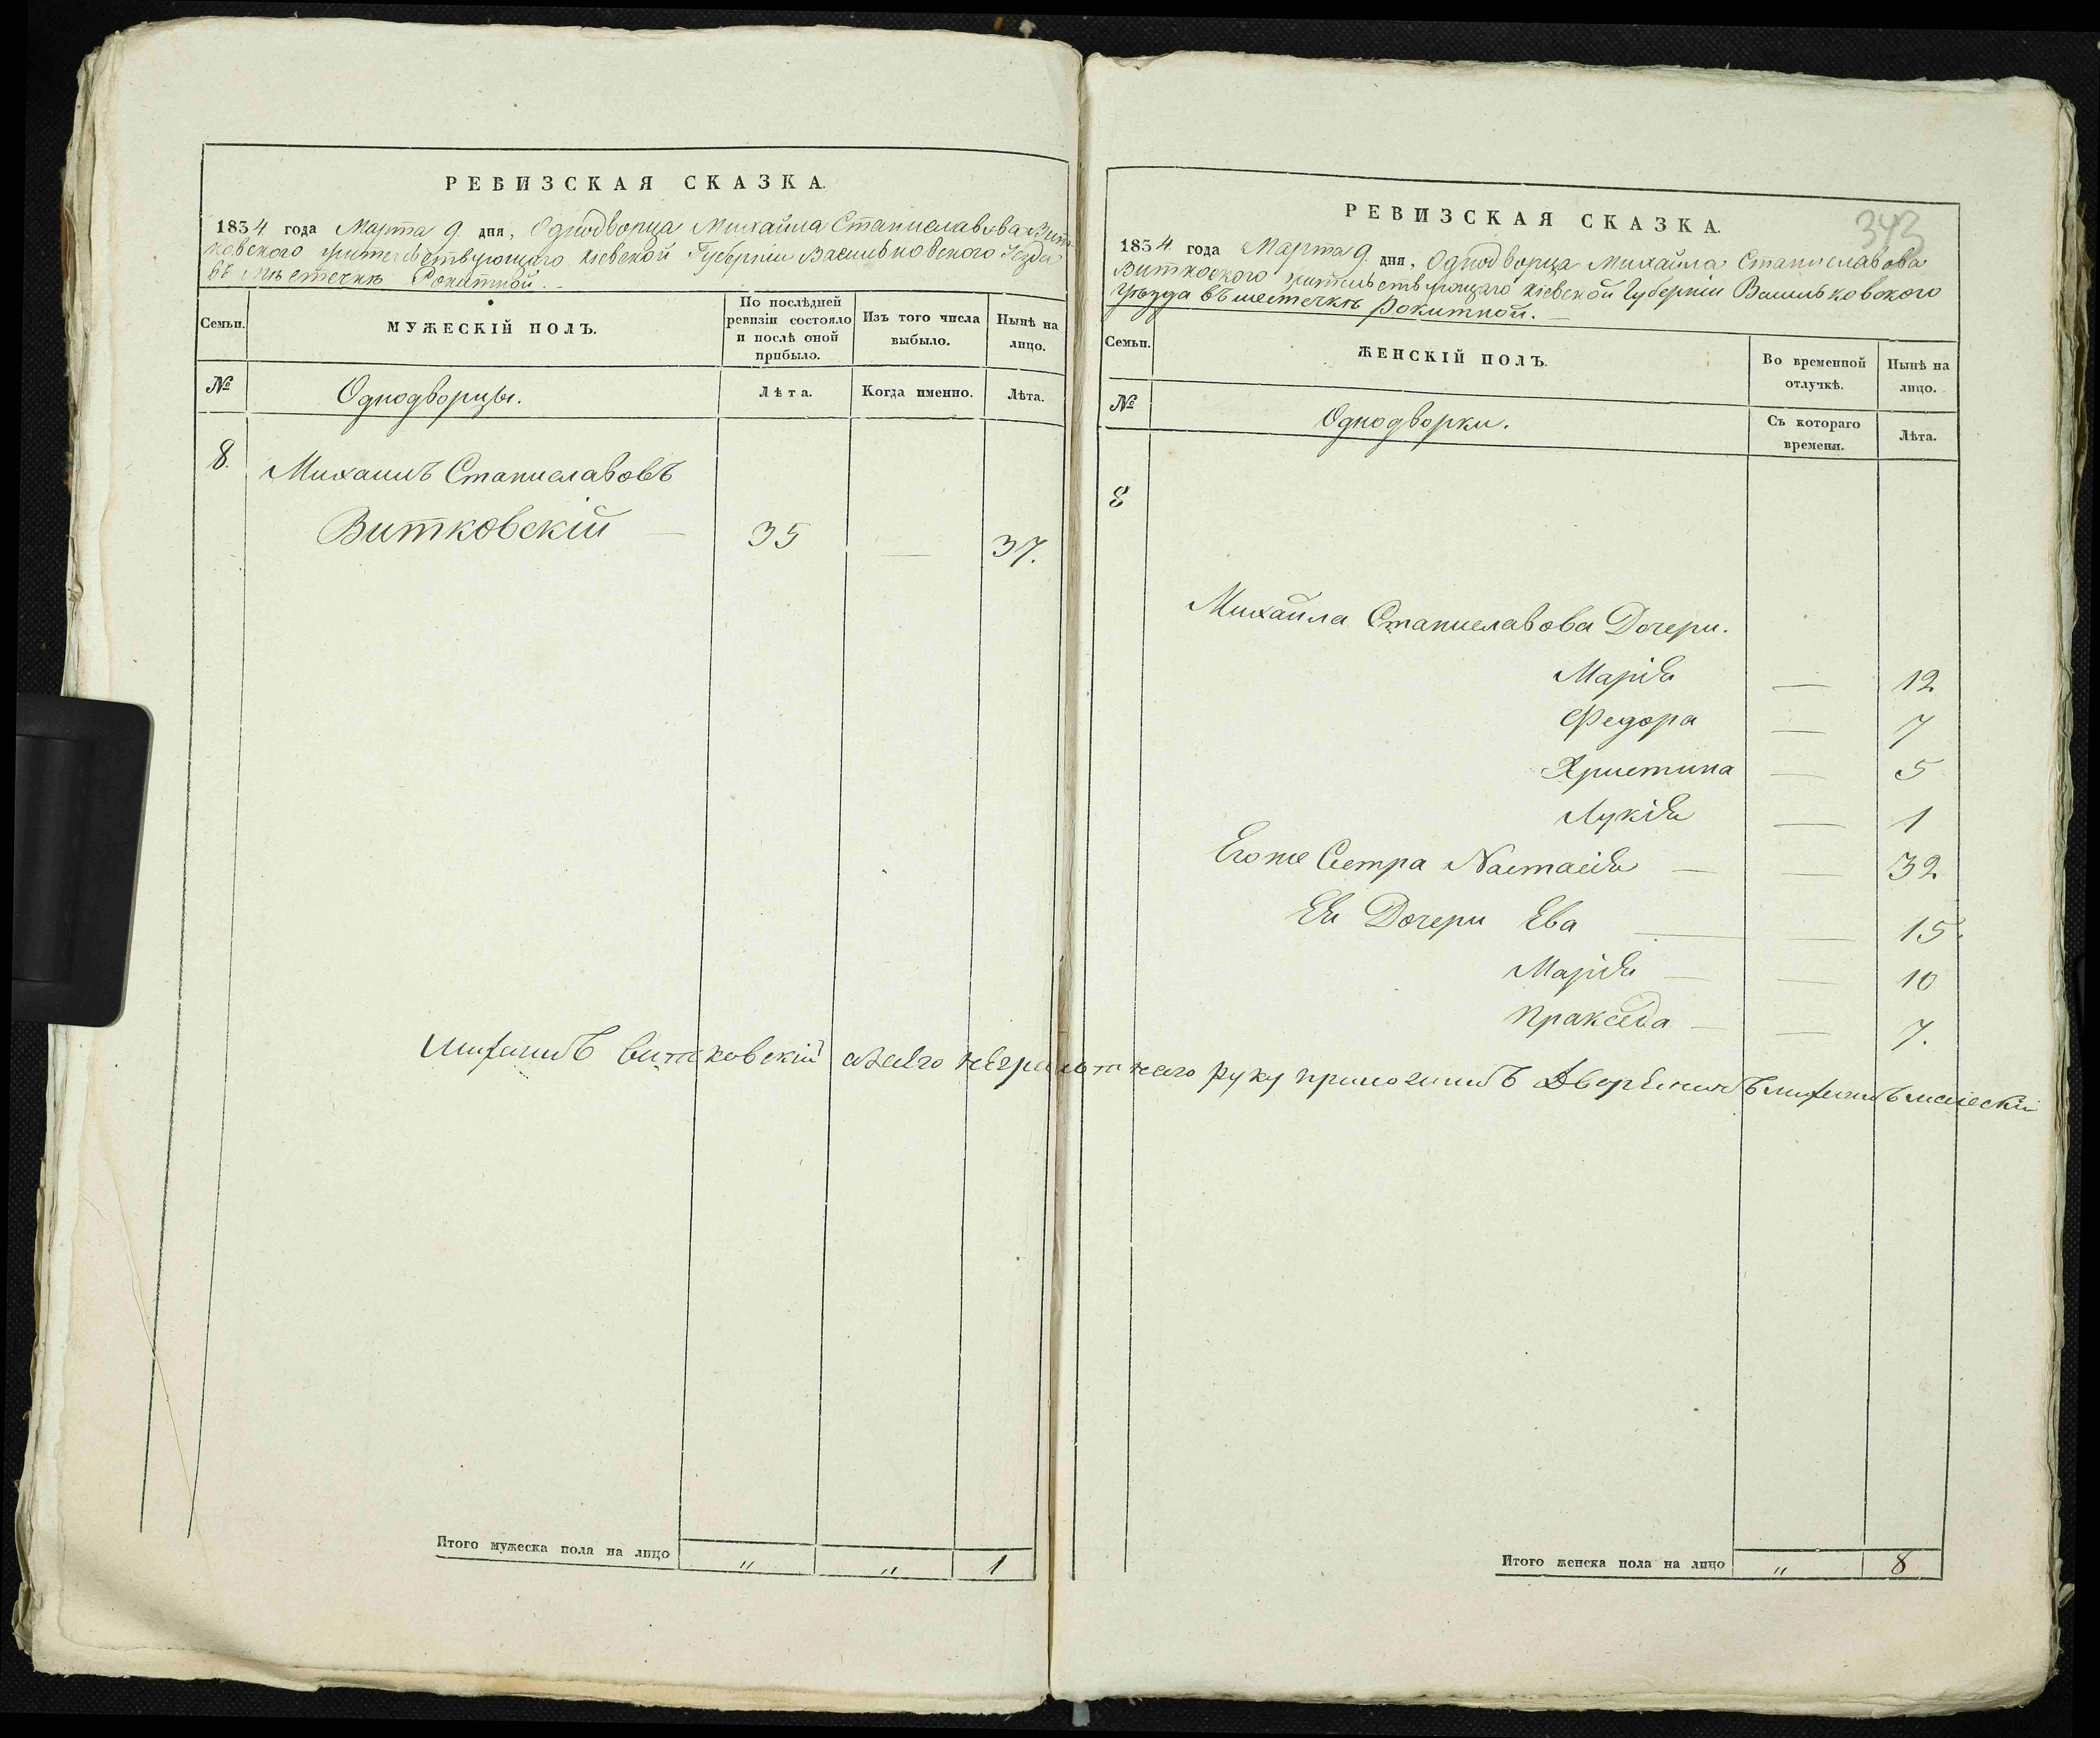 РЕВИЗСКАЯ СКАЗКА.
1834 года Марта 9. дня, Однодворца Михайла Станиславова Вит-
ковского жительствующаго Кіевской Губерніи Васильковского Уезда
въ Мѣстечкѣ Рокитной.
Семьи.
МУЖЕСКІЙ ПОЛЪ.
По послѣдней
ревизіи состояло
и послѣ оной
прибыло.
Изъ того числа
выбыло.
Нынѣ на
лицо.
№
Однодворцы.
Лѣта.
Когда именно.
Лѣта.
8. Михаилъ Станиславовъ
Витковскій — 35 — 37.
Итого мужеска пола на лицо " " 1
343
РЕВИЗСКАЯ СКАЗКА.
1834 года Марта 9. дня, Однодворца Михайла Станиславова
Витковского жительствующаго Кіевской Губерніи Васильковского
уѣзда въ местечкѣ Рокитной.
Семьи.
ЖЕНСКІЙ ПОЛЪ.
Во временной
отлучкѣ.
Нынѣ на
лицо.
№
Однодворки.
Съ котораго
времени.
Лѣта.
8
Михайла Станиславова Дочери.
Марія — 12
Федора — 7
Христина — 5
Лукія — 1
Егоже Сестра Настасія — — 32
Ея Дочери Ева — — 15.
Марія — — 10
Пракседа — — 7.
Михаилъ витковский а заего неграмотнаго руку приложилъ Дворянинъ михаилъ
Итого женска пола на лицо " 8